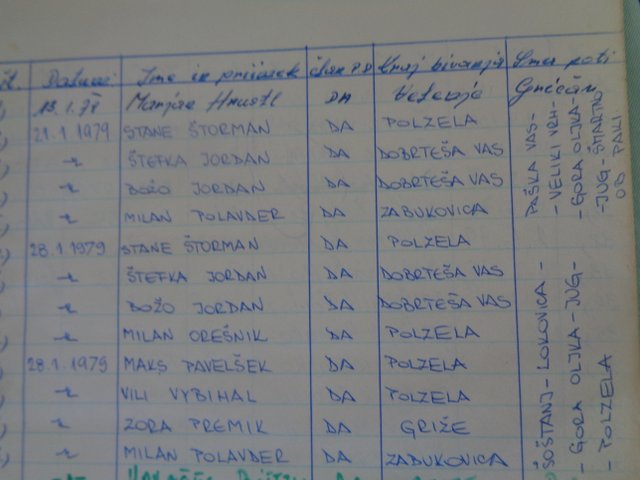 Datum Ime in priimek član P.D. Kraj bivanja Smer poti
13.1.79 Marjan DA
21.1.1979 STANE ŠTORMAN DA POLZELA
-"- ŠTEFKA JORDAN DA DOBRTEŠA VAS
-"- BOŽO JORDAN DA DOBRTEŠA VAS
-"- MILAN POLAVDER DA ZABUKOVICA
28.1.1979 STANE ŠTORMAN DA POLZELA
-"- ŠTEFKA JORDAN DA DOBRTEŠA VAS
-"- BOŽO JORDAN DA DOBRTEŠA VAS
-"- MILAN OREŠNIK DA POLZELA
28.1.1979 MAKS PAVELŠEK DA POLZELA
-"- VILI VYBIHAL DA POLZELA
-"- ZORA PREMIK DA GRIŽE
-"- MILAN POLAVDER DA ZABUKOVICA
PAŠKA VAS-
-VELIKI VRH-
-GORA OLJKA-
-JUG-ŠMARTNO
OB PAKI
ŠOŠTANJ-LOKOVICA-
-GORA OLJKA-JUG-
-POLZELA